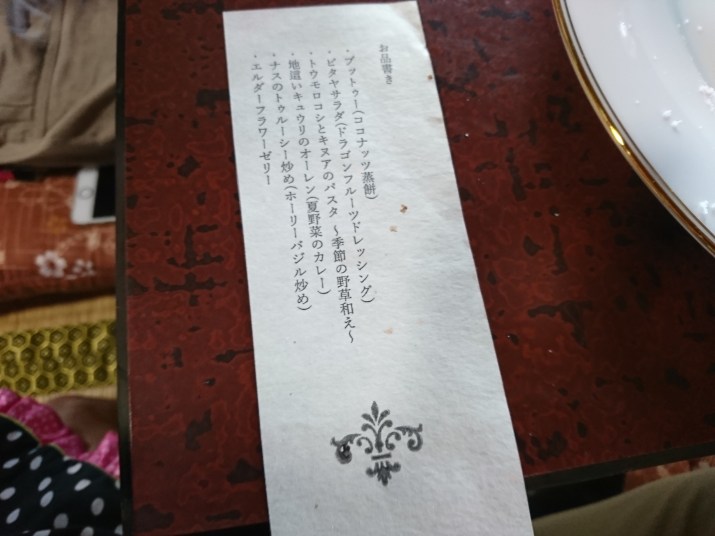 お品書き
・プットゥー(ココナッツ蒸餅)
・ピタヤサラダ(ドラゴンフルーツドレッシング)
・トウモロコシとキヌアのパスタ 〜季節の野草和え〜
・地這いキュウリのオーレン(夏野菜のカレー)
・ナスのトゥルーシー炒め(ホーリーバジル炒め)
・エルダーフラワーゼリー